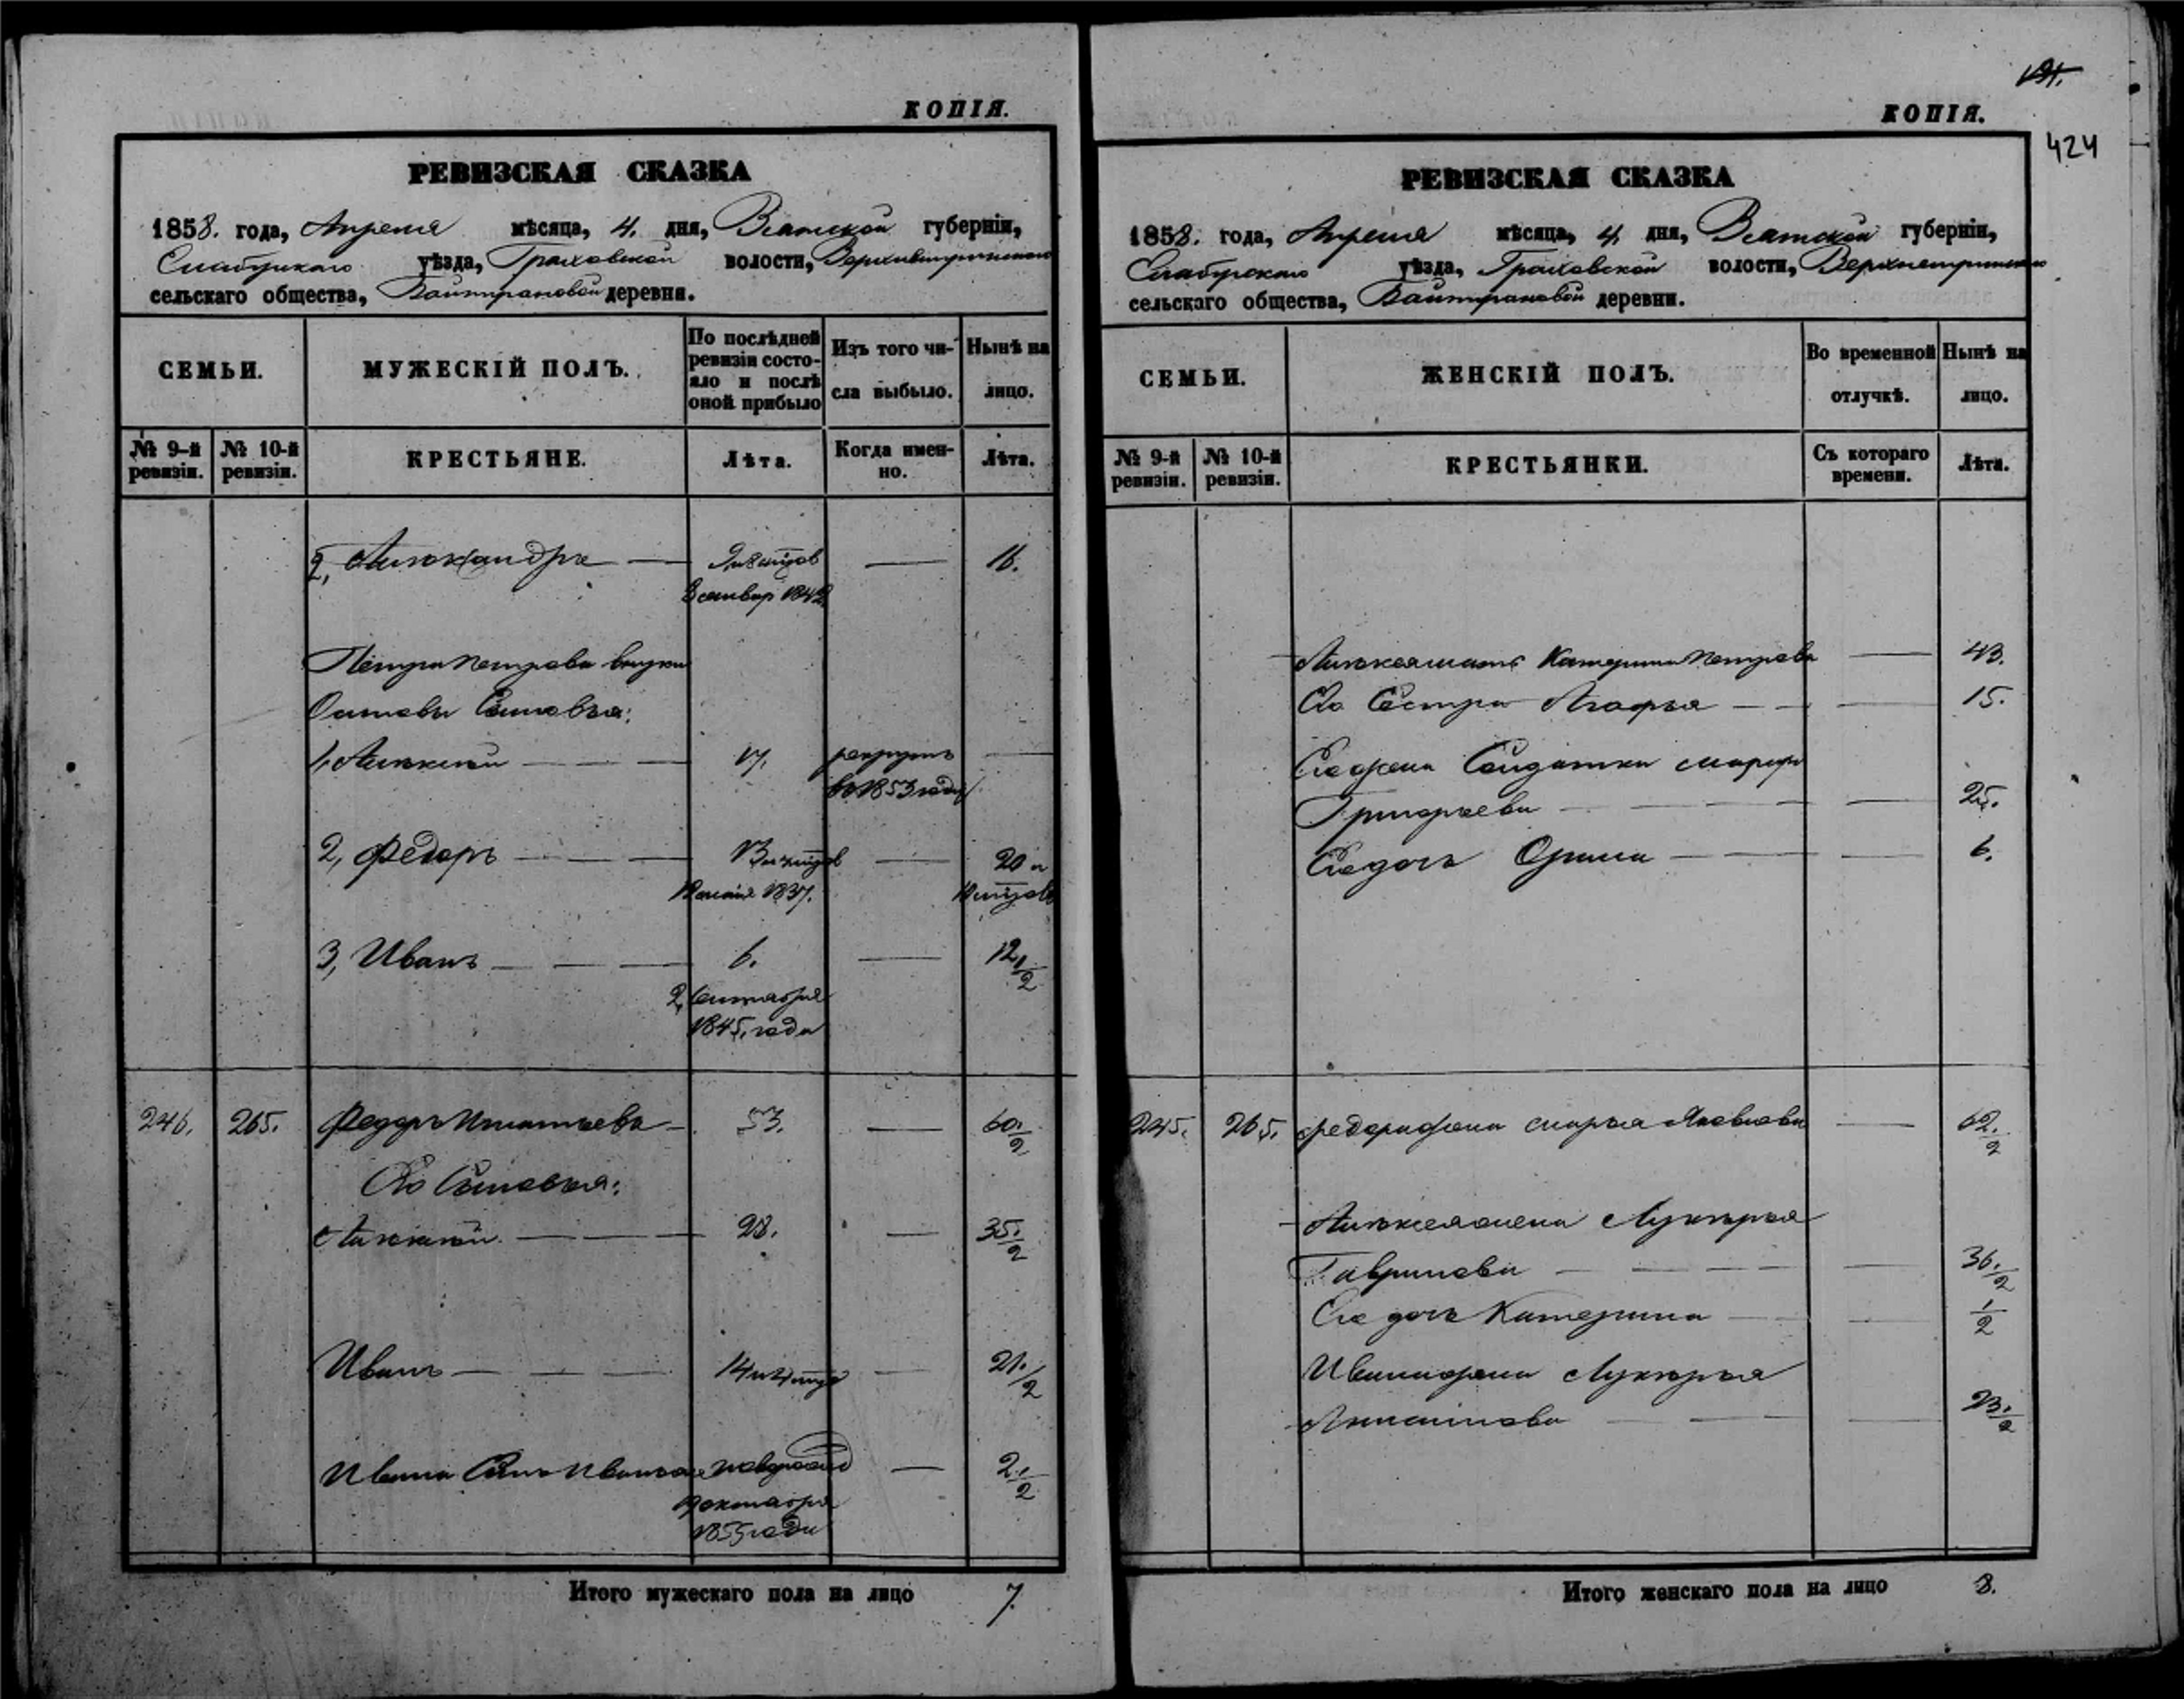 КОПІЯ.
РЕВИЗСКАЯ СКАЗКА
1858. года, Апреля мѣсяца, 4. дня, Вятской губерніи,
Елабужскаго уѣзда, Граховской волости,
сельскаго общества, Байтерановой деревни.
СЕМЬИ.
МУЖЕСКІЙ ПОЛЪ.
По послѣдней ревизіи состо-
яло и послѣ
оной прибыло
Изъ того чи-
сла выбыло.
Нынѣ на
лицо.
№ 9-й ревизіи.
№ 10-й ревизіи.
КРЕСТЬЯНЕ.
Лѣта.
Когда имен-
но.
Лѣта.
2, Александръ 16.
1842
Петра Петрова внуки
Сыновья:
1, Алексѣй 17. рекрутъ
въ 1853 году
2, Федоръ 20 и
1837.
3, Иванъ 6. 12 1/2
2, Сентября
1845, года
246. 265. Федоръ Игнатьевъ 53. 60. 1/2
Его Сыновья:
Алексѣй 28. 35. 1/2
Иванъ 14 и 21. 1/2
Ивана Сынъ Иванъ 2. 1/2
октября
1855 года
Итого мужескаго пола на лицо 7.
191.
КОПІЯ.
424
РЕВИЗСКАЯ СКАЗКА
1858. года, Апреля мѣсяца, 4. дня, Вятской губерніи,
Елабужскаго уѣзда, Граховской волости,
сельскаго общества, Байтерановой деревни.
СЕМЬИ.
ЖЕНСКІЙ ПОЛЪ.
Во временной
отлучкѣ.
Нынѣ на
лицо.
№ 9-й ревизіи.
№ 10-й ревизіи.
КРЕСТЬЯНКИ.
Съ котораго
времени.
Лѣта.
Катерина Петрова 43.
Его Сестра Агафья 15.
Его жена Солдатка Марфа
Григорьева 25.
Ея дочь Орина 6.
245. 265. Федора жена Марья Яковлева 62. 1/2
Алексея жена Лукерья
Гаврилова 36. 1/2
Ея дочь Катерина 1/2
Ивана жена Лукерья
23. 1/2
Итого женскаго пола на лицо 8.